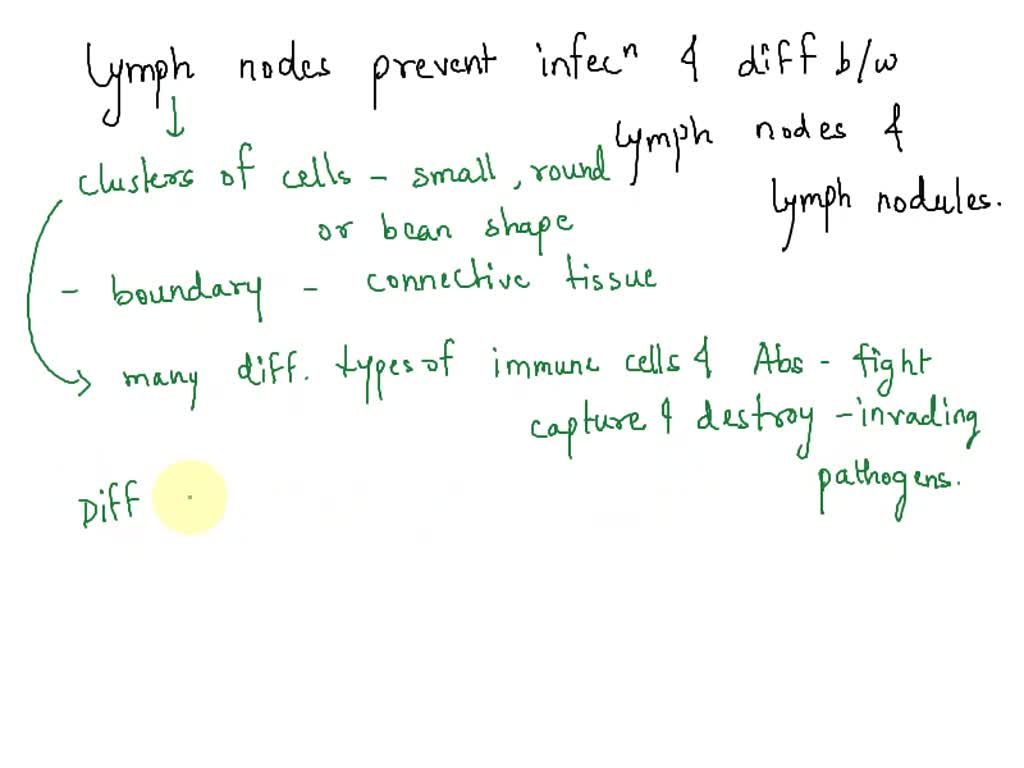 Lymph nodes prevent infecⁿ & diff b/w
lymph nodes &
lymph nodules.
clusters of cells - small, round
or bean shape
- boundary - connective tissue
many diff. types of immune cells & Abs - fight
capture & destroy - invading
pathogens.
Diff